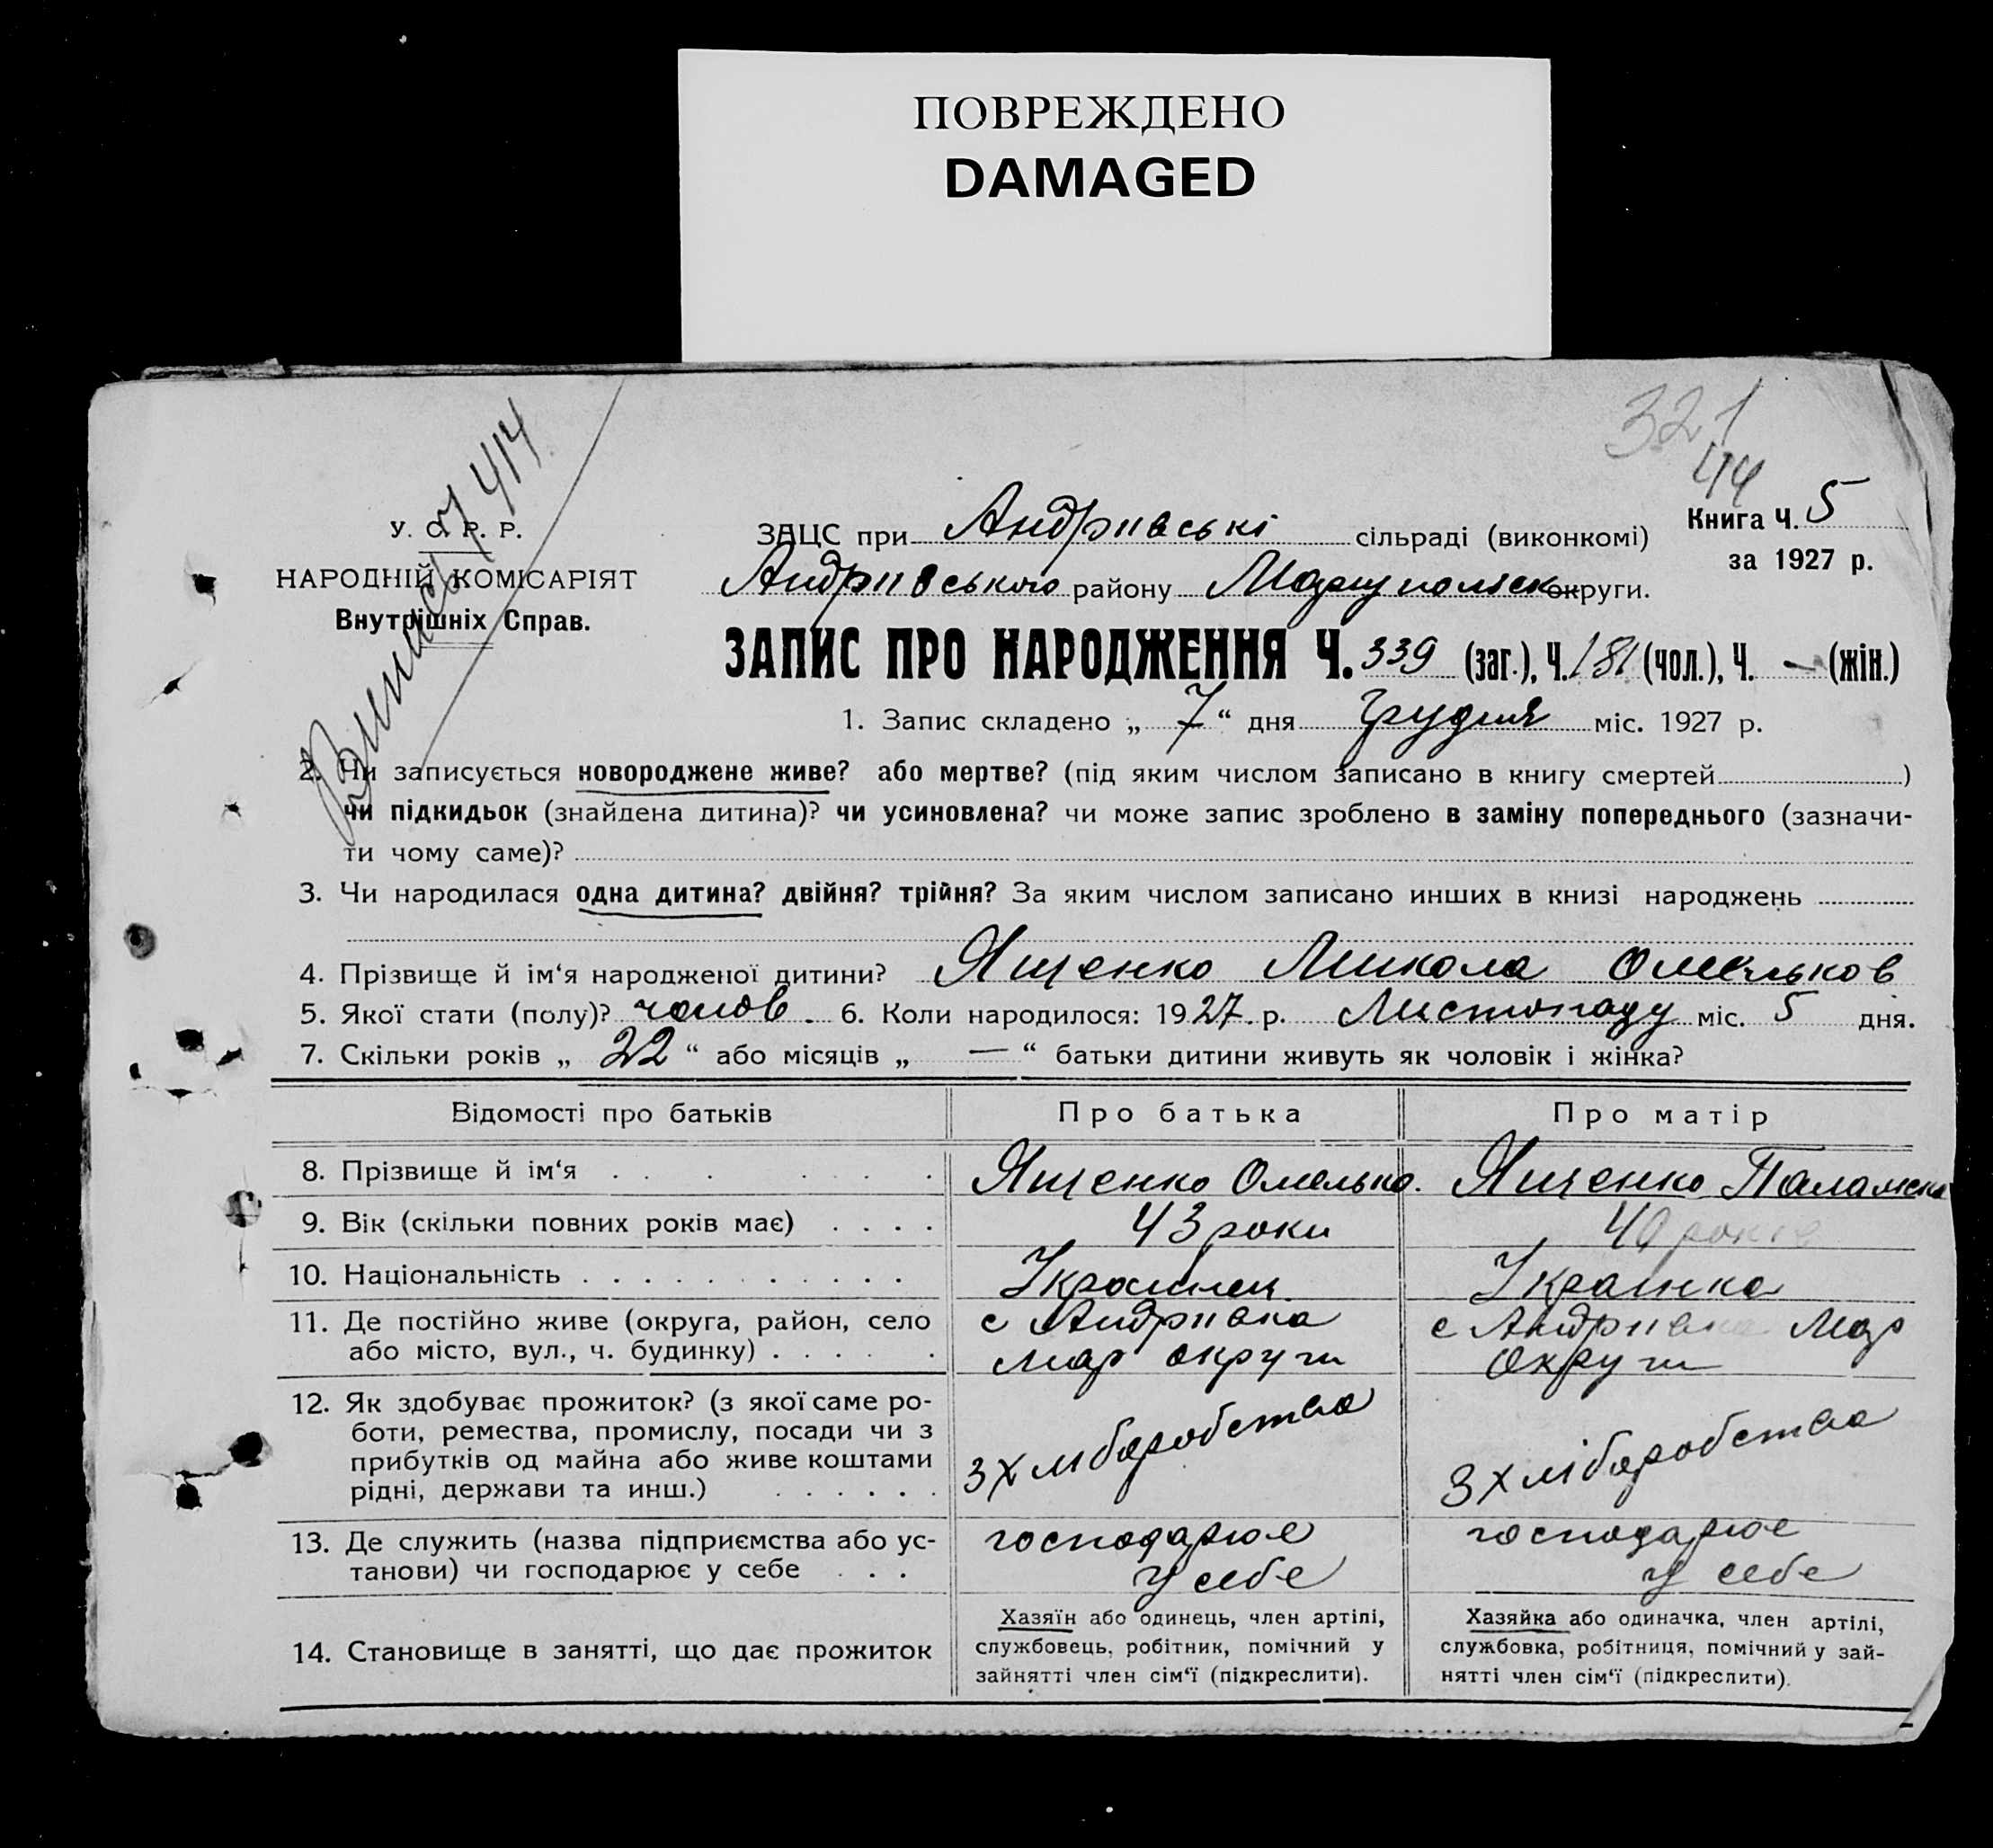 ПОВРЕЖДЕНО
DAMAGED
321
44
Виписъ 7 414
У. С. Р. Р.
НАРОДНІЙ КОМІСАРІЯТ
Внутрішніх Справ.
ЗАЦС при Андриївські сільраді (виконкомі)
Книга Ч. 5
за 1927 р.
Андриівського району Маріупольск округи.
ЗАПИС ПРО НАРОДЖЕННЯ Ч. 339 (заг.), Ч. 181 (чол.), Ч. — (жін.)
1. Запис складено „ 7 “ дня Грудня міс. 1927 р.
2. Чи записується новороджене живе? або мертве? (під яким числом записано в книгу смертей )
чи підкидьок (знайдена дитина)? чи усиновлена? чи може запис зроблено в заміну попереднього (зазначи-
ти чому саме)?
3. Чи народилася одна дитина? двійня? трійня? За яким числом записано инших в книзі народжень
4. Прізвище й ім‘я народженої дитини? Ященко Микола Омельков
5. Якої стати (полу)? чолов. 6. Коли народилося: 1927. р. Листопаду міс. 5 дня.
7. Скільки років „ 22 “ або місяців „ — “ батьки дитини живуть як чоловік і жінка?
Відомості про батьків Про батька Про матір
8. Прізвище й ім‘я Ященко Омелько. Ященко Паламска
9. Вік (скільки повних років має) 43 роки 40 років
10. Національність Українец Українка
11. Де постійно живе (округа, район, село с Андриівка с Андриівка Мар
або місто, вул., ч. будинку) мар округи округи
12. Як здобуває прожиток? (з якої саме ро-
боти, ремества, промислу, посади чи з
прибутків од майна або живе коштами
рідні, держави та инш.) з хліборобства з хліборобства
13. Де служить (назва підприємства або ус- господарює господарює
танови) чи господарює у себе у себе у себе
14. Становище в занятті, що дає прожиток
Хазяїн або одинець, член артілі,
службовець, робітник, помічний у
зайнятті член сім‘ї (підкреслити).
Хазяйка або одиначка, член артілі,
службовка, робітниця, помічний у зай-
нятті член сім‘ї (підкреслити).